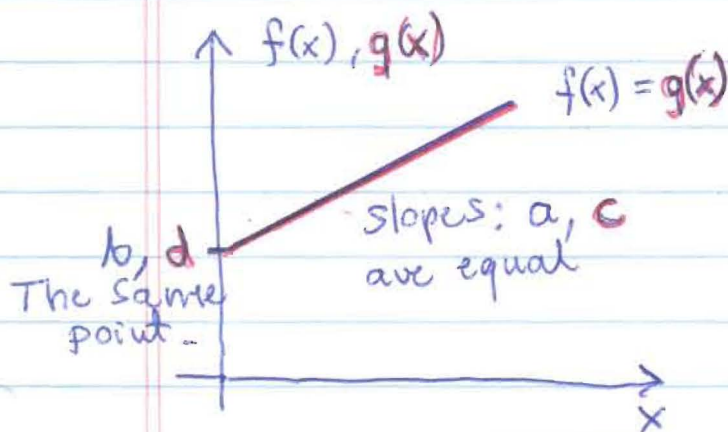 f(x), g(x)
f(x) = g(x)
slopes: a, c
are equal
b, d
The same
point.
x